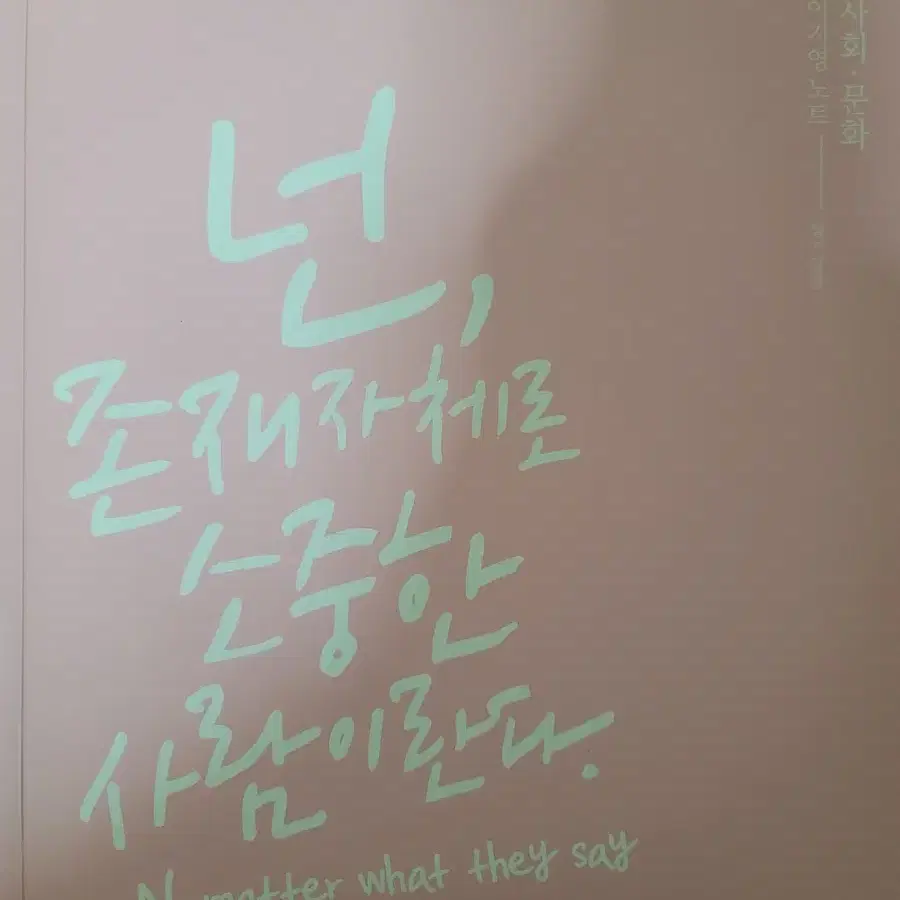 사회·문화
이기영노트
넌,
존재자체로
소중한
사람이란다.
No matter what they say